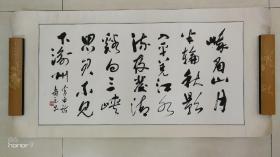 峨眉山月
半轮秋影
入平羌江水
流夜发清
溪向三峡
思君不见
下渝州 李白诗